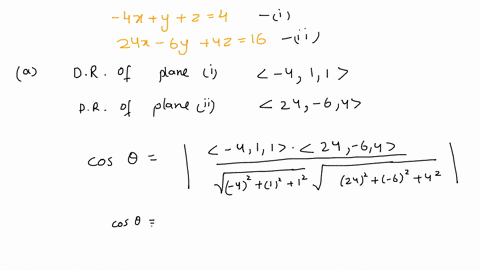 -4x + y + z = 4 -(i)
24x - 6y + 4z = 16 -(ii)
(a) D.R. of plane (i) < -4, 1, 1 >
D.R. of plane (ii) < 24, -6, 4 >
cos θ = | < -4, 1, 1 > · < 24, -6, 4 > / √(-4)² + (1)² + 1² √(24)² + (-6)² + 4² |
cos θ =